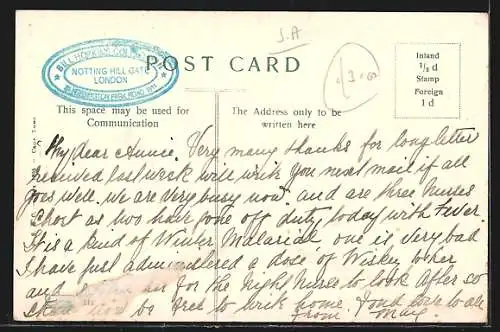 S.A
BILL HOPKINS COLLECTION
NOTTING HILL GATE
LONDON
KENSINGTON PARK ROAD W11
POST CARD
3.
Inland
½ d
Stamp
Foreign
1 d
This space may be used for
Communication
The Address only to be
written here
My dear Annie. Very many thanks for long letter
received last week will write you next mail if all
goes well. we are very busy now. and are three Nurses
short as two have gone off duty today with Fever.
It is a kind of Winter Malarial, one is very bad
I have just administered a dose of Wiskey to her
and her for the night Nurse to look After so
now be free to write home. Fond love to all
from May.